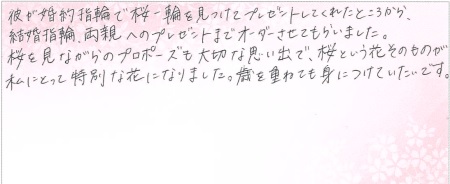 彼が婚約指輪で桜一輪を見つけてプレゼントしてくれたところから、
結婚指輪、両親へのプレゼントまでオーダーさせてもらいました。
桜を見ながらのプロポーズも大切な思い出で、桜という花そのものが
私にとって特別な花になりました。歳を重ねても身につけていたいです。